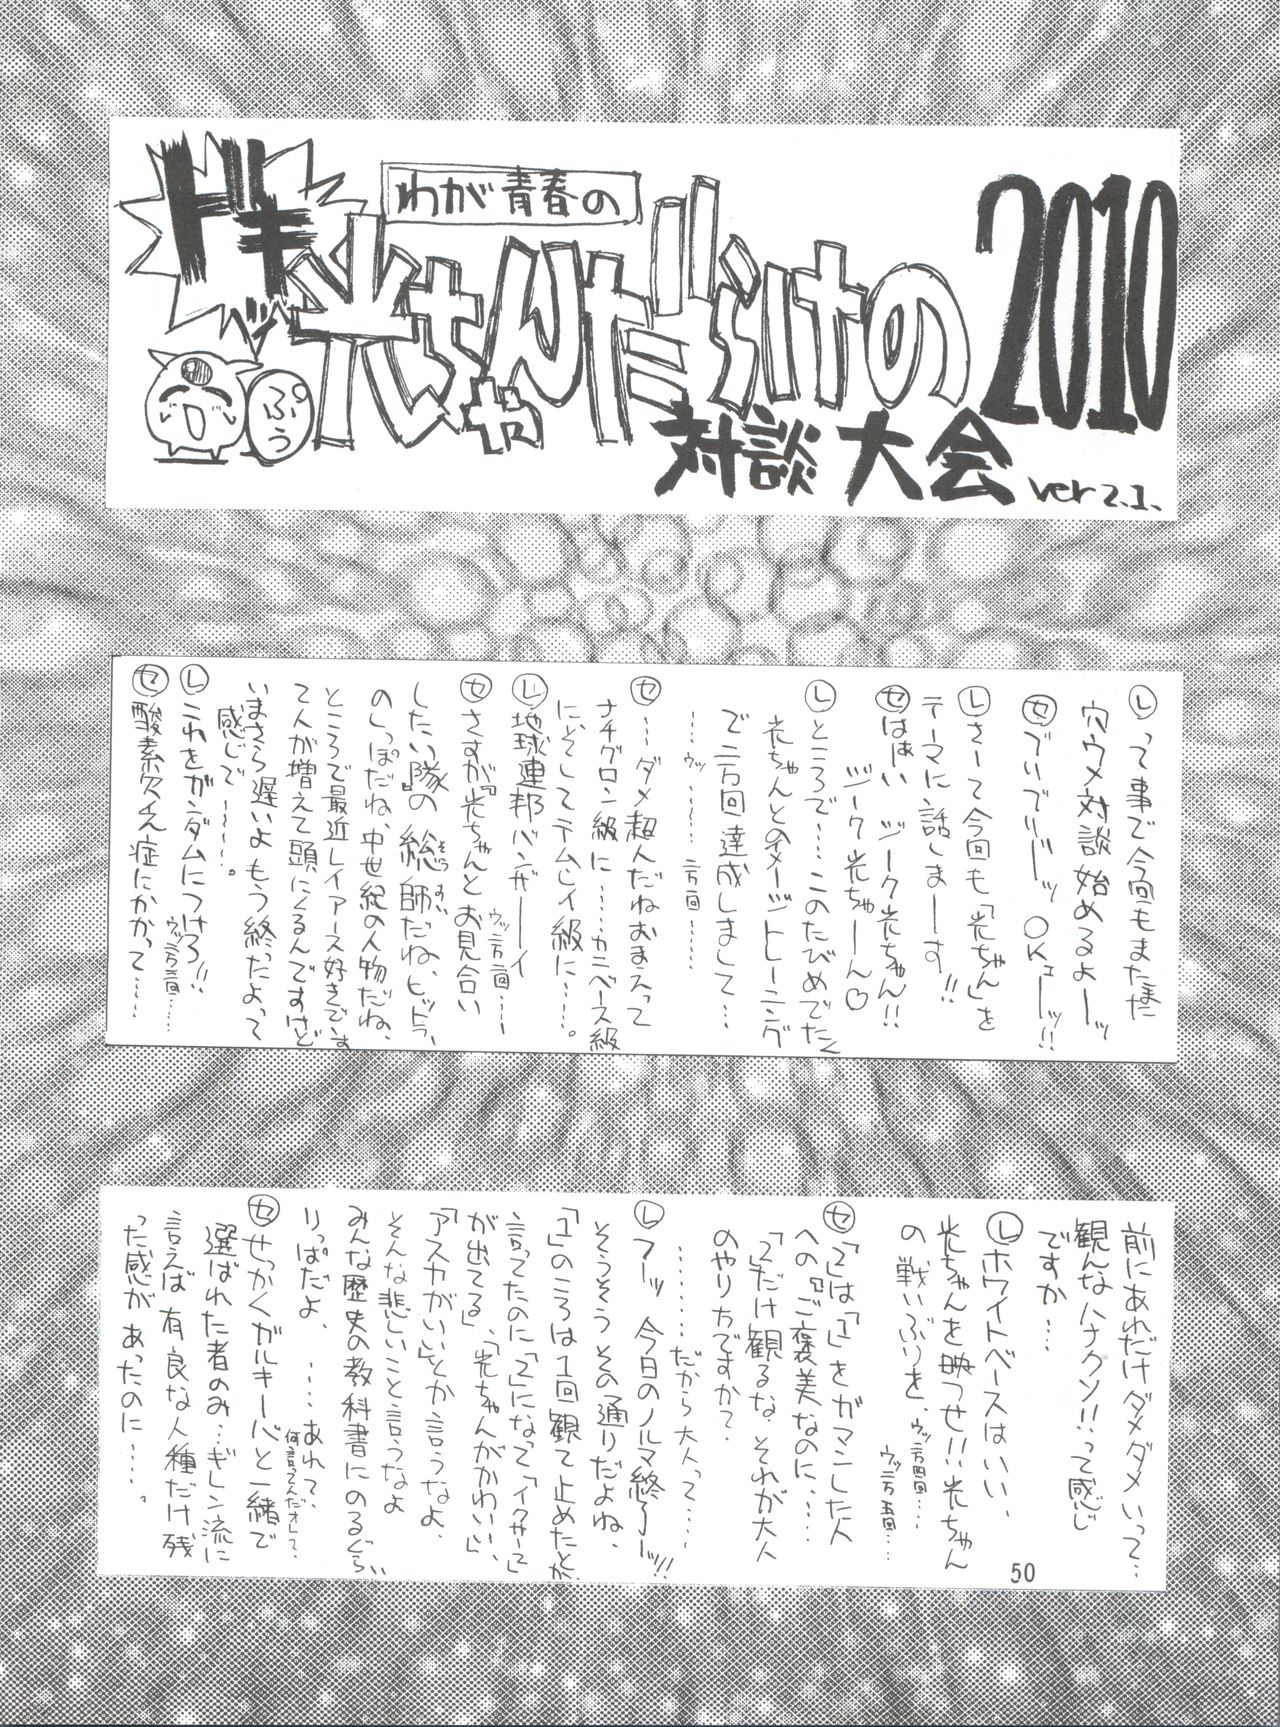 ドキ
わが青春の
光ちゃんだらけの
2010
ぷぅ
対談大会 ver2.1.
Ⓛって事で今回もまたまた
穴ウメ対談始めるよーッ
OKェーッ!!
Ⓛさーて今回も「光ちゃん」を
テーマに話しまーす!!
㋝はぁい ジーク光ちゃん!!
ジーク光ちゃーん♡
Ⓛところで…このたびめでたく
光ちゃんとのイメージトレーニング
で二万回達成しまして…
㋝…ダメ超人だねおまえって
ナチグロン級に……カニベース級
に、そしてテムレイ級に……。
Ⓛ地球連邦バンザーーイ
㋝さすが『光ちゃんとお見合い
したい隊』の総師だね、ヒットラー
のしっぽだね、中世紀の人物だね、
ところで最近レイアース好きですっ
て人が増えて頭にくるんですけど
いまさら遅いよもう終ったよって
感じで……。
Ⓛこれをガンダムにつけろ!!
㋝酸素欠乏症にかかって……
前にあれだけダメダメいって…
観んなハナクソ!!って感じ
ですか…
Ⓛホワイトベースはいい、
光ちゃんを映つせ!!光ちゃん
の戦いぶりを、
㋝「2」は「1」をガマンした人
への『ご褒美なのに……
「2」だけ観るな、それが大人
のやり方ですか？
………だから大人って……
Ⓛフーッ 今日のノルマ終了ーッ!!
そうそう その通りだよね、
「1」のころは1回観て止めたとか
言ってたのに「2」になって「イクサー1」
が出てる」、「光ちゃんがかわいい」
「アスカがいい」とか言うなよ、
そんな悲しいこと言うなよ
みんな歴史の教科書にのるぐらい
りっぱだよ、……あれ？、
何言ってんだオレ？、
㋝せっかくガルキーバと一緒で
選ばれた者のみ…ギレン流に
言えば有良な人種だけ残
った感があったのに……。
50